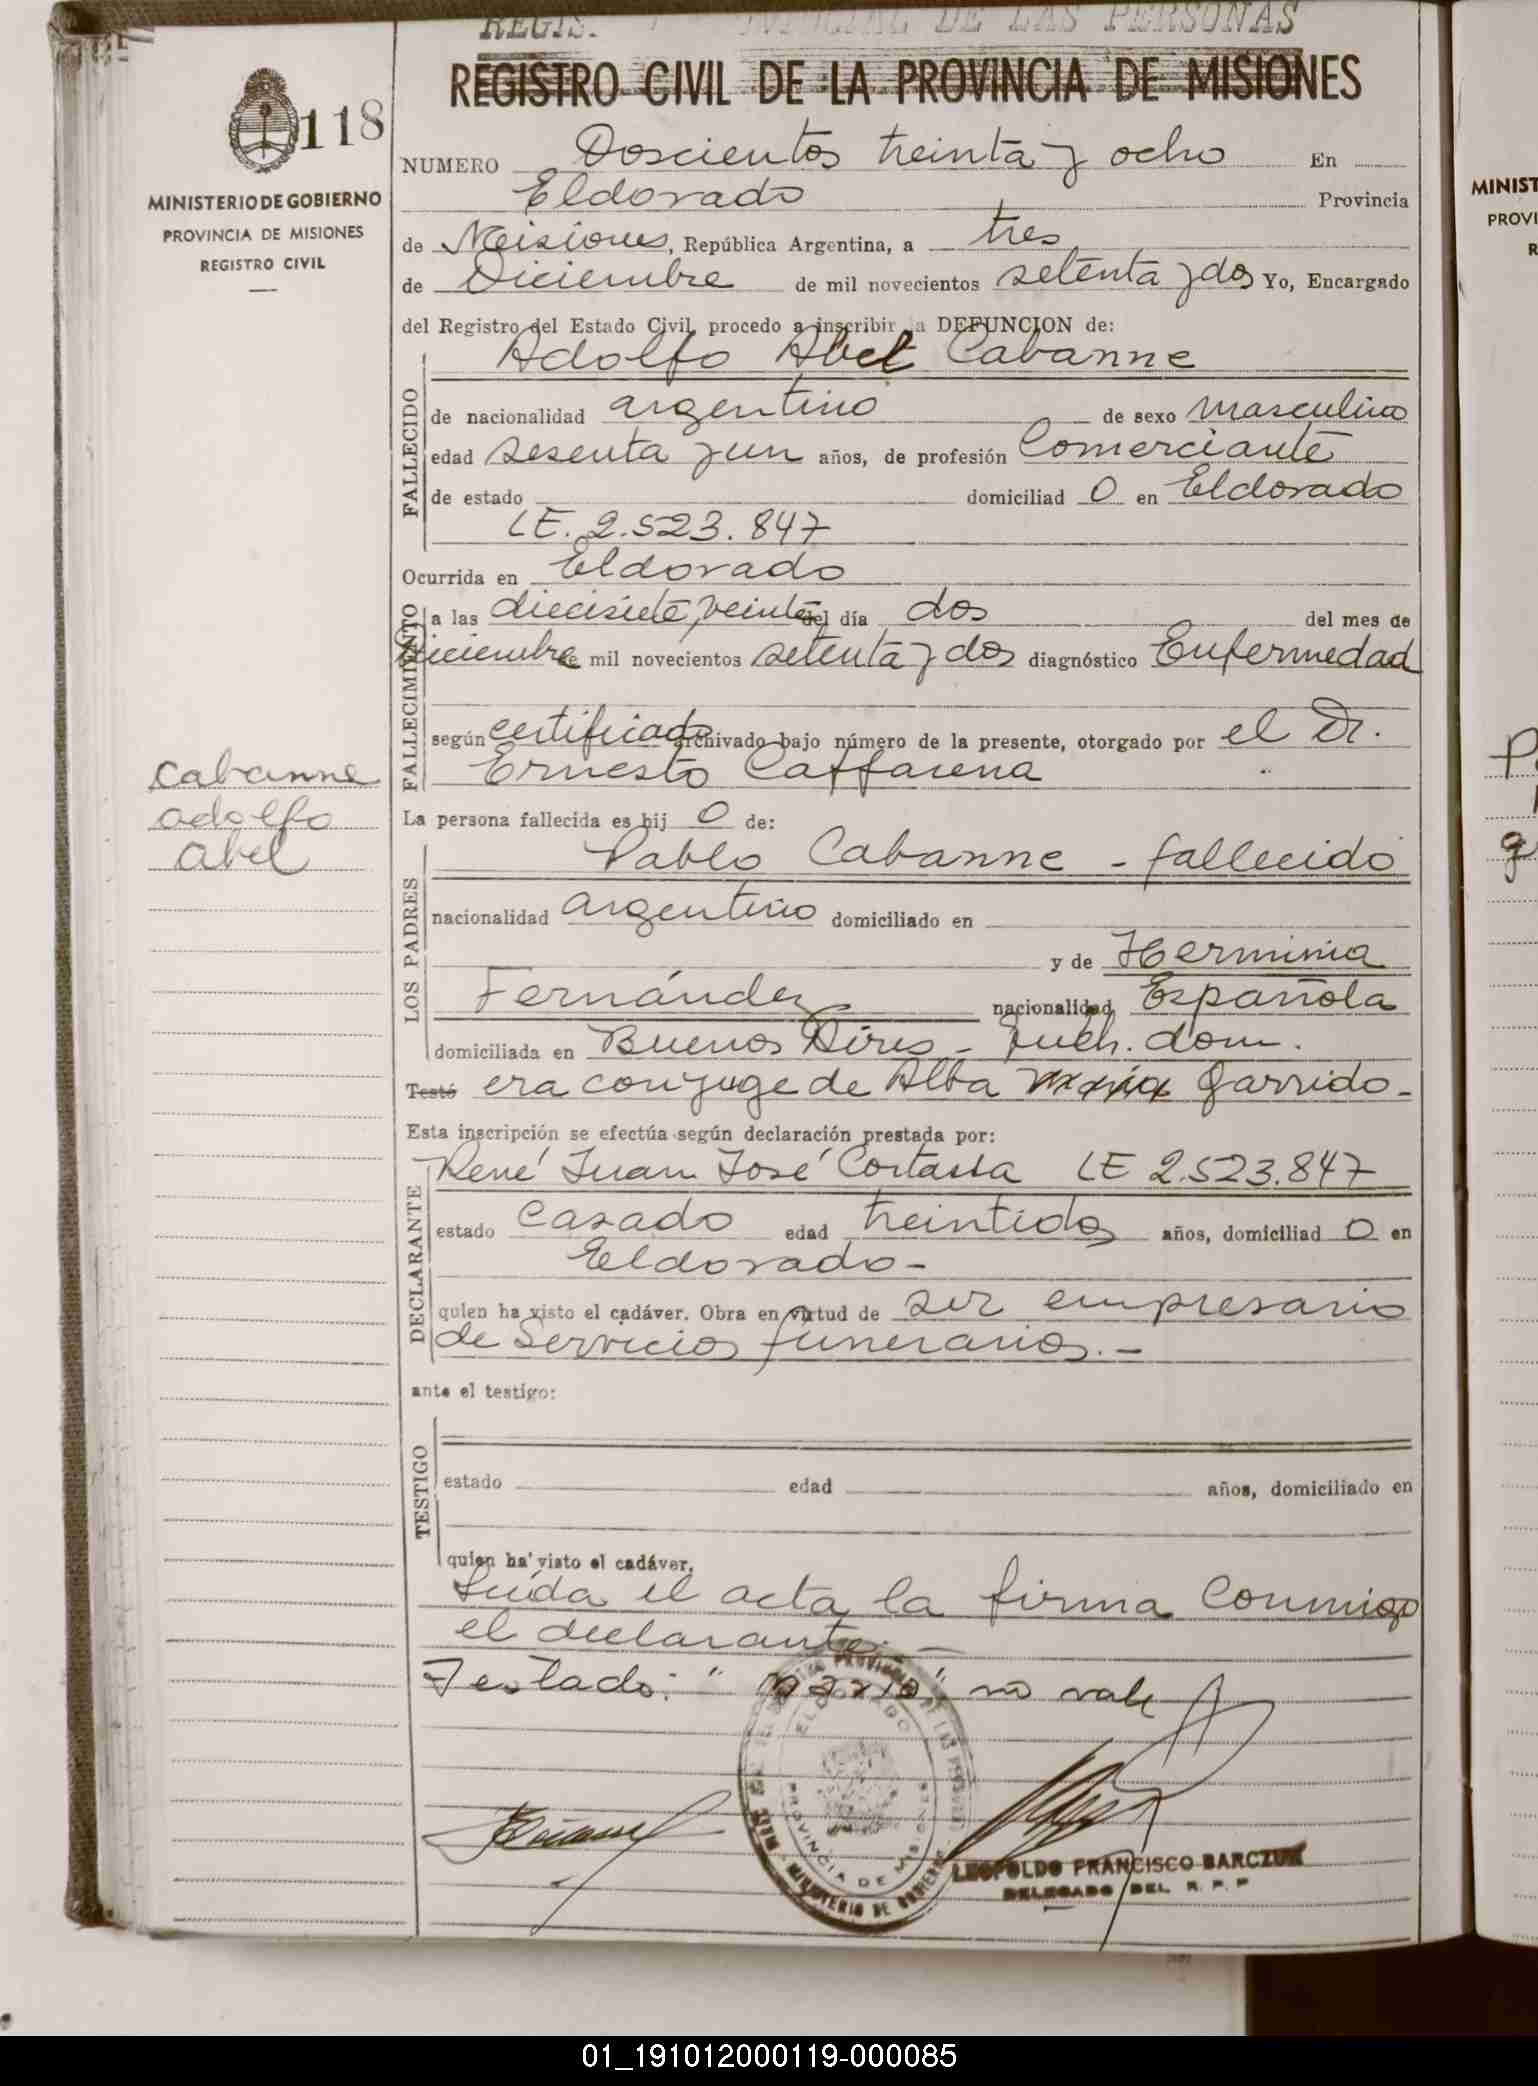 REGIS. PROVINCIAL DE LAS PERSONAS
REGISTRO CIVIL DE LA PROVINCIA DE MISIONES
118
MINISTERIO DE GOBIERNO
PROVINCIA DE MISIONES
REGISTRO CIVIL
NUMERO Doscientos treinta y ocho En
Eldorado Provincia
de Misiones, República Argentina, a tres
de Diciembre de mil novecientos setenta y dos Yo, Encargado
del Registro del Estado Civil, procedo a inscribir la DEFUNCION de:
Adolfo Abel Cabanne
FALLECIDO
de nacionalidad argentino de sexo masculino
edad sesenta y un años, de profesión Comerciante
de estado domiciliad o en Eldorado
LE. 2.523.847
Ocurrida en Eldorado
FALLECIMIENTO
a las diecisiete, veinte del día dos del mes de
Diciembre de mil novecientos setenta y dos diagnóstico Enfermedad
según certificado archivado bajo número de la presente, otorgado por el Dr.
Ernesto Caffarena
Cabanne
adolfo
abel
La persona fallecida es hij o de:
LOS PADRES
Pablo Cabanne - fallecido
nacionalidad argentino domiciliado en
y de Herminia
Fernández nacionalidad Española
domiciliada en Buenos Aires - queh. dom.
Testó era conyuge de Alba maria Garrido-
Esta inscripción se efectúa según declaración prestada por:
DECLARANTE
René Juan José Cortassa LE 2.523.847
estado Casado edad treintidos años, domiciliad o en
Eldorado-
quien ha visto el cadáver. Obra en virtud de ser empresario
de Servicios funerarios.-
ante el testigo:
TESTIGO
estado edad años, domiciliado en
quien ha visto el cadáver.
Leída el acta la firma Conmigo
el declarante.-
Testado: "maria" no vale
ELDORADO
PROVINCIA DE MISIONES
MINISTERIO DE GOBIERNO
LEOPOLDO FRANCISCO BARCZUK
DELEGADO DEL R. P. P
MINIST
PROVI
R
01_191012000119-000085